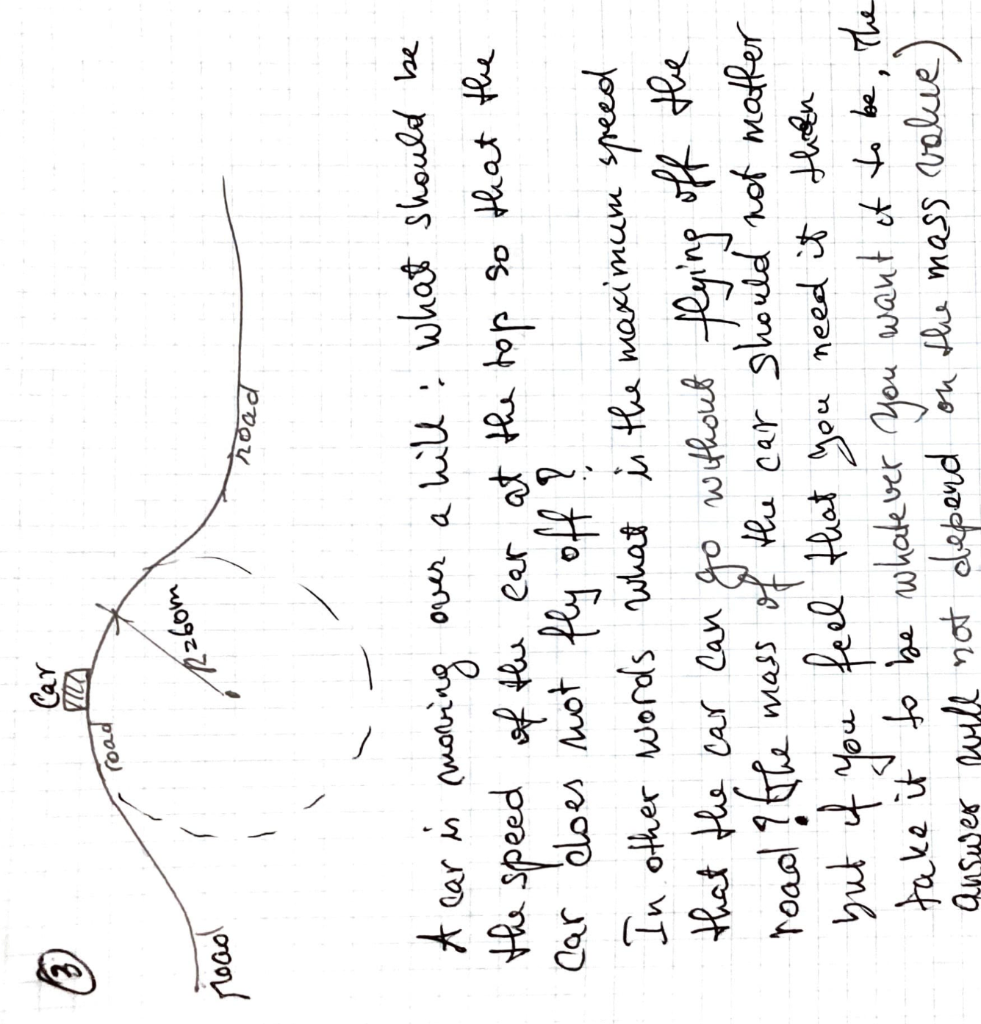 ③
Car
road
R=60m
road
road
A car is moving over a hill: what should be
the speed of the car at the top so that the
car does not fly off?
In other words what is the maximum speed
that the car can go without flying off the
road? (the mass of the car should not mather
but if you feel that you need it then
take it to be whatever you want it to be, the
answer will not depend on the mass value)